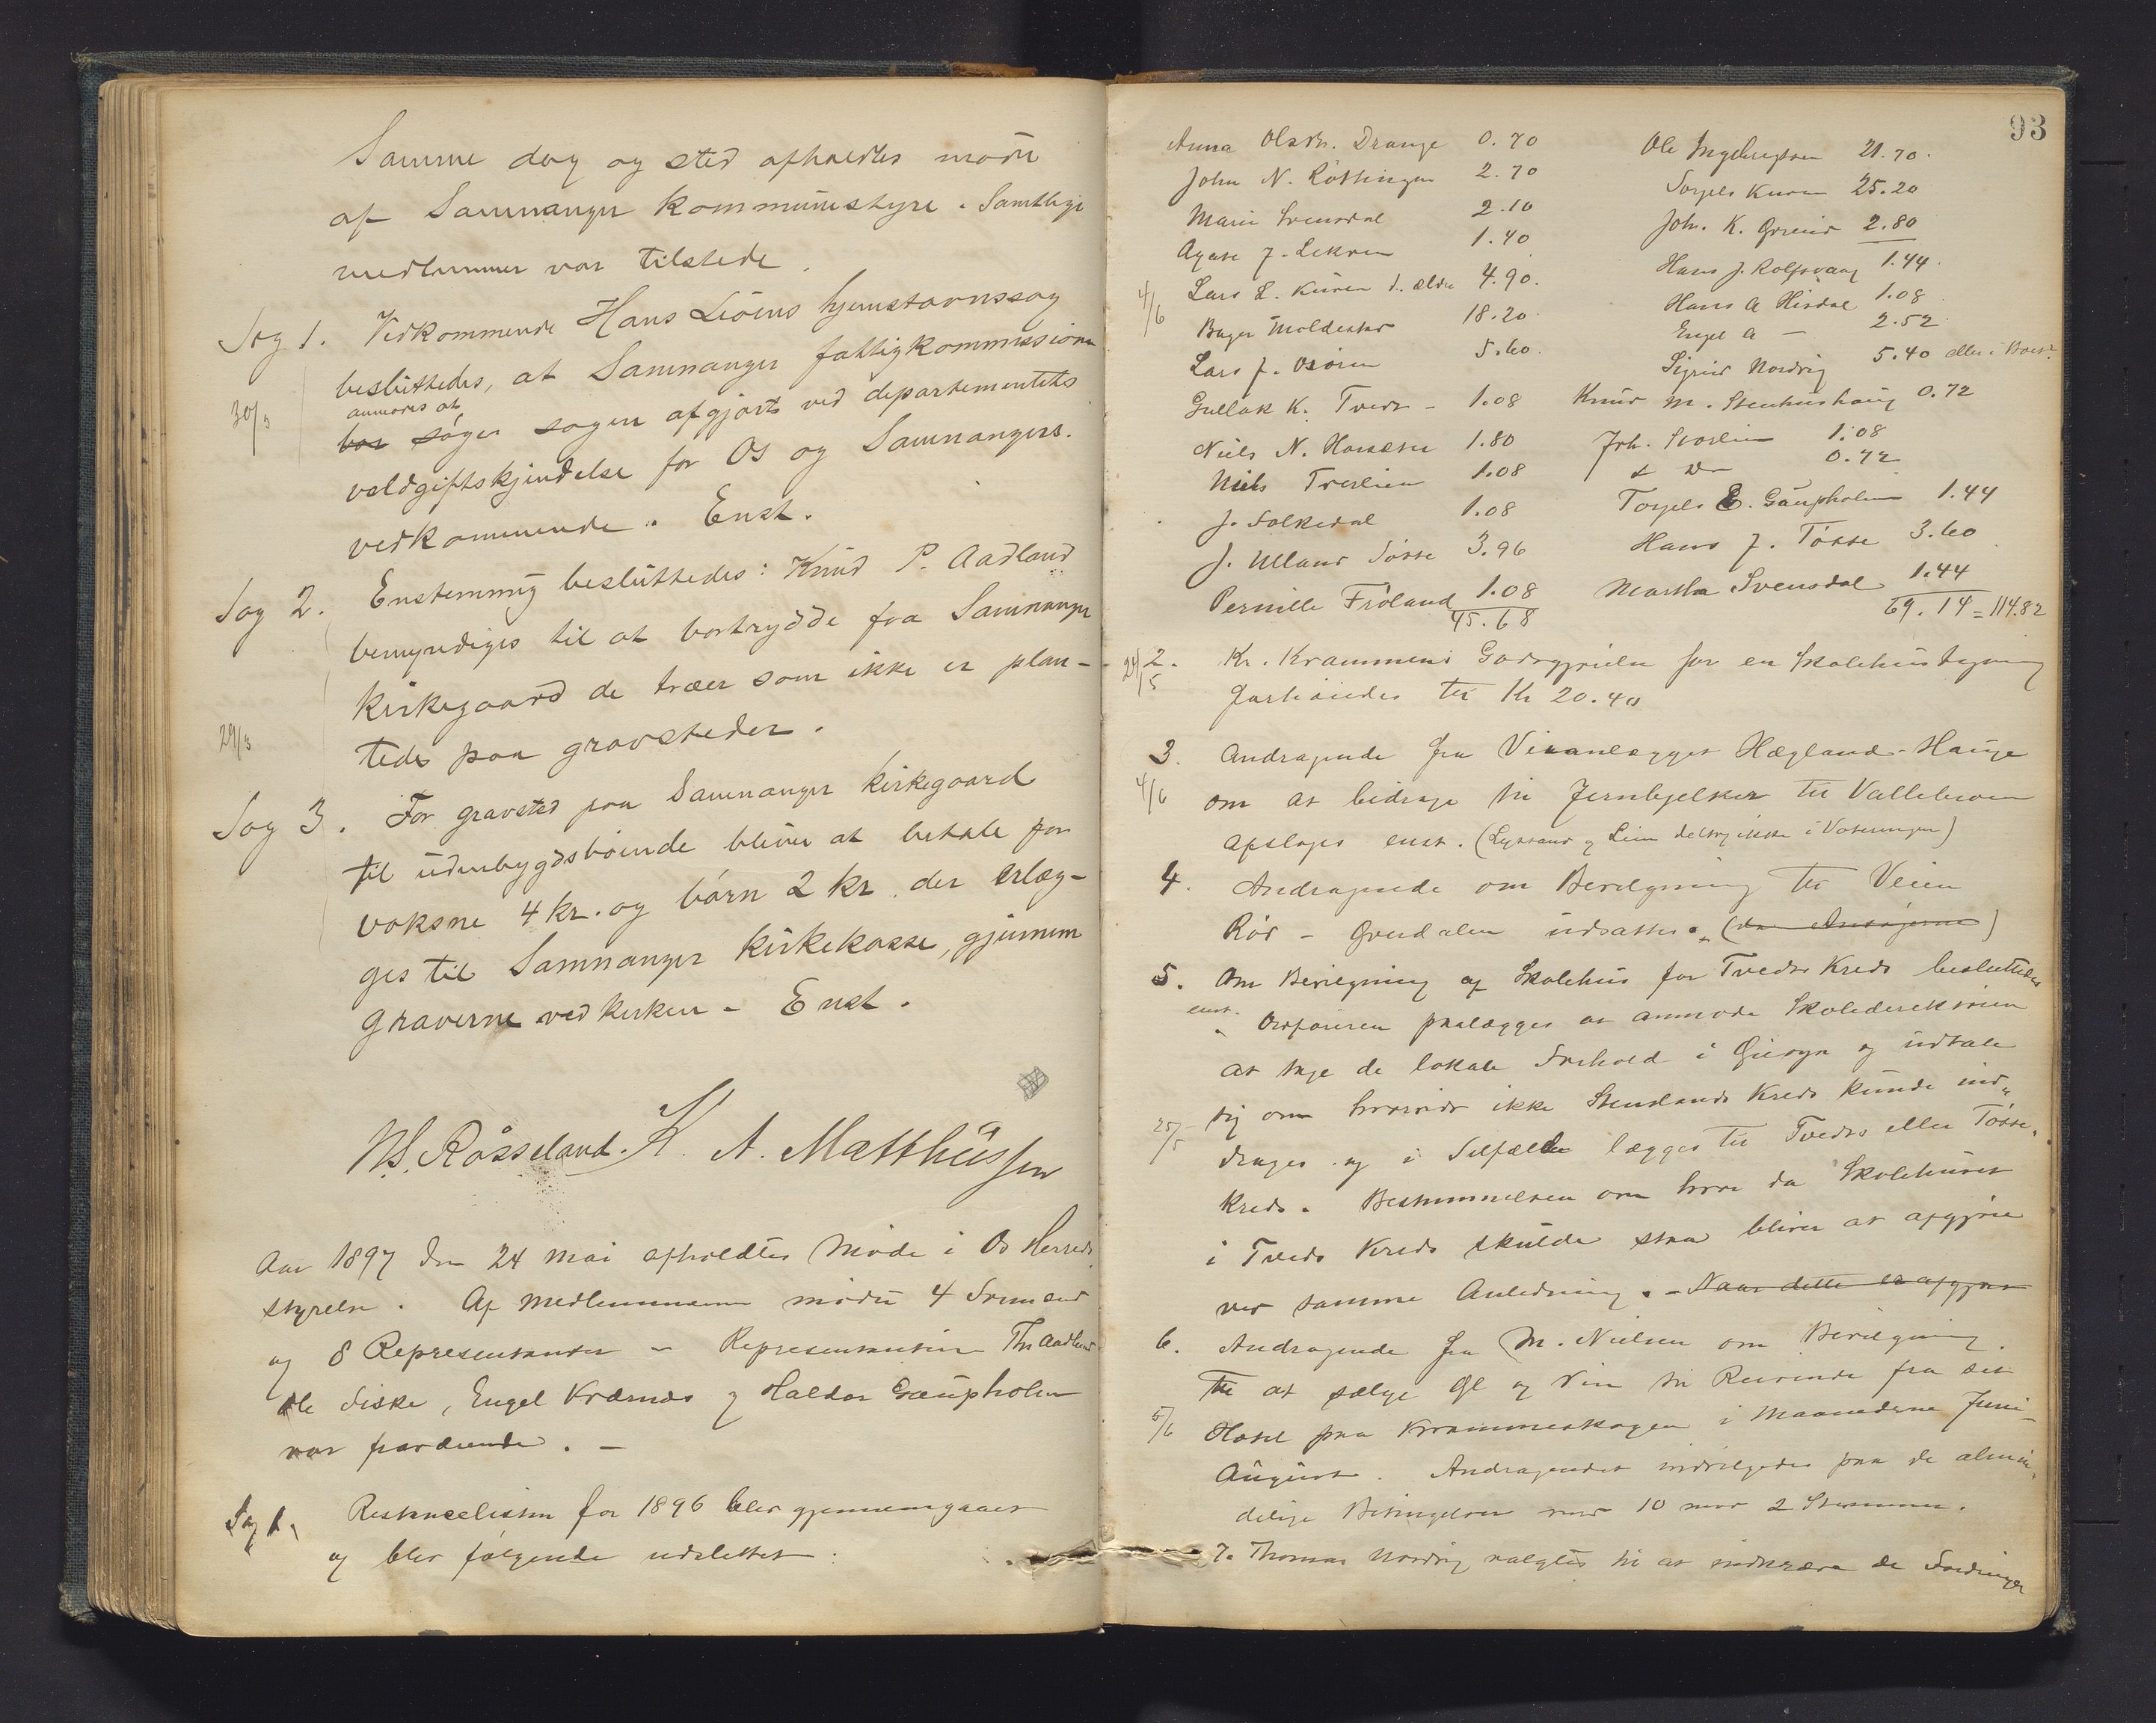 Samme dag og sted afholdtes møde
af Samnanger kommunestyre. Samtlige
medlemmer var tilstede.
Sag 1. Vedkommende Hans Liøens hjemstavnssag
besluttedes, at Samnanger fattigkommission
anmodes at
30/3 bør søges sagen afgjort ved departementets
voldgiftskjendelse for Os og Samnangers
vedkommende. Enst.
Sag 2. Enstemmig besluttedes: Knud P. Aadland
bemyndiges til at bortrydde fra Samnanger
kirkegaard de træer som ikke er plan-
29/3 tede paa gravsteder.
Sag 3. For gravsted paa Samnanger kirkegaard
til udenbygdsboende bliver at betale for
voksne 4 kr. og børn 2 kr. der erlæg-
ges til Samnanger kirkekasse, gjennem
graverne ved kirken - Enst.
N. S. Røsseland. K. A. Matthiessen
Aar 1897 den 24 mai afholdtes Møde i Os Herreds
styrelse. Af Medlemmerne mødte 4 Formænd
og 8 Representanter - Representanterne Ths Aadland
Ole Siske, Engel Kræmæs og Haldor Gaupholm
var fraværende. -
Sag 1. Restancelisten for 1896 blev gjennemgaaet
og blev følgende udslettet:
93
Anna Olsdtr. Drange 0.70
John N. Røttingen 2.70
Marie Svensdal 2.10
Agate J. Lekven 1.40
4/6 Lars L. Kuven d. ældre 4.90.
Bager Moldestad 18.20
Lars J. Osøren 5.60.
Gullak K. Tvedt - 1.08
Niels N. Hausdal 1.80
Niels Tveslien 1.08
J. Solkedal 1.08
J. Ulland Tøsse 3.96
Pernille Frøland 1.08
45.68
Ole Ingebrigtsen 21.70.
Torgels Kuven 25.20
Joh. K. Grøeid 2.80
Hans J. Rolfsvaag 1.44.
Hans A Hisdal 1.08
Engel A - 2.52
Sigrid Nordvig 5.40
Knud M. Stenhushaug 0.72
Joh. Svaslien 1.08
& Do 0.72
Torgels E. Gaupholm 1.44
Hans J. Tøsse 3.60
Martha Svensdal 1.44
69.14 = 114.82
24/5 2. Kr. Krammens Godtgjørelse for en Skolehustegning
fastsattes til Kr 20.40
3. Andragende fra Veianlægget Hægland-Hauge
4/6 om at bidrage til Jernbjelker til Vallebroen
afslages enst. (Lyssand og Lien deltog ikke i Voteringen)
4. Andragende om Bevilgning til Veien
Rød - Gverdalen udsattes. (da Ansøgerne)
5. Om Bevilgning af Skolehus for Tvedts Kreds besluttedes
enst.
Ordføreren paalægges at anmode Skoledirektøren
at tage de lokale Forhold i Øiesyn og udtale
sig om hvorvidt ikke Stenslands Kreds kunde ind-
25/5 drages og i Tilfælde lægges til Tvedts eller Tøsse
Kreds. Bestemmelsen om hvor da Skolehuset
i Tvedts Kreds skulde staa bliver at afgjøre
ved samme Anledning. - Naar dette er afgjort
6. Andragende fra M. Nielsen om Bevilgning
til at sælge Øl og Vin til Reisende fra sit
5/6 Hotel paa Krammeskogen i Maanederne Juni-
August. Andragendet indvilgedes paa de almin-
delige Betingelser med 10 mod 2 Stemmer.
7. Thomas Nordvig valgtes til at indkræve de Fordringer